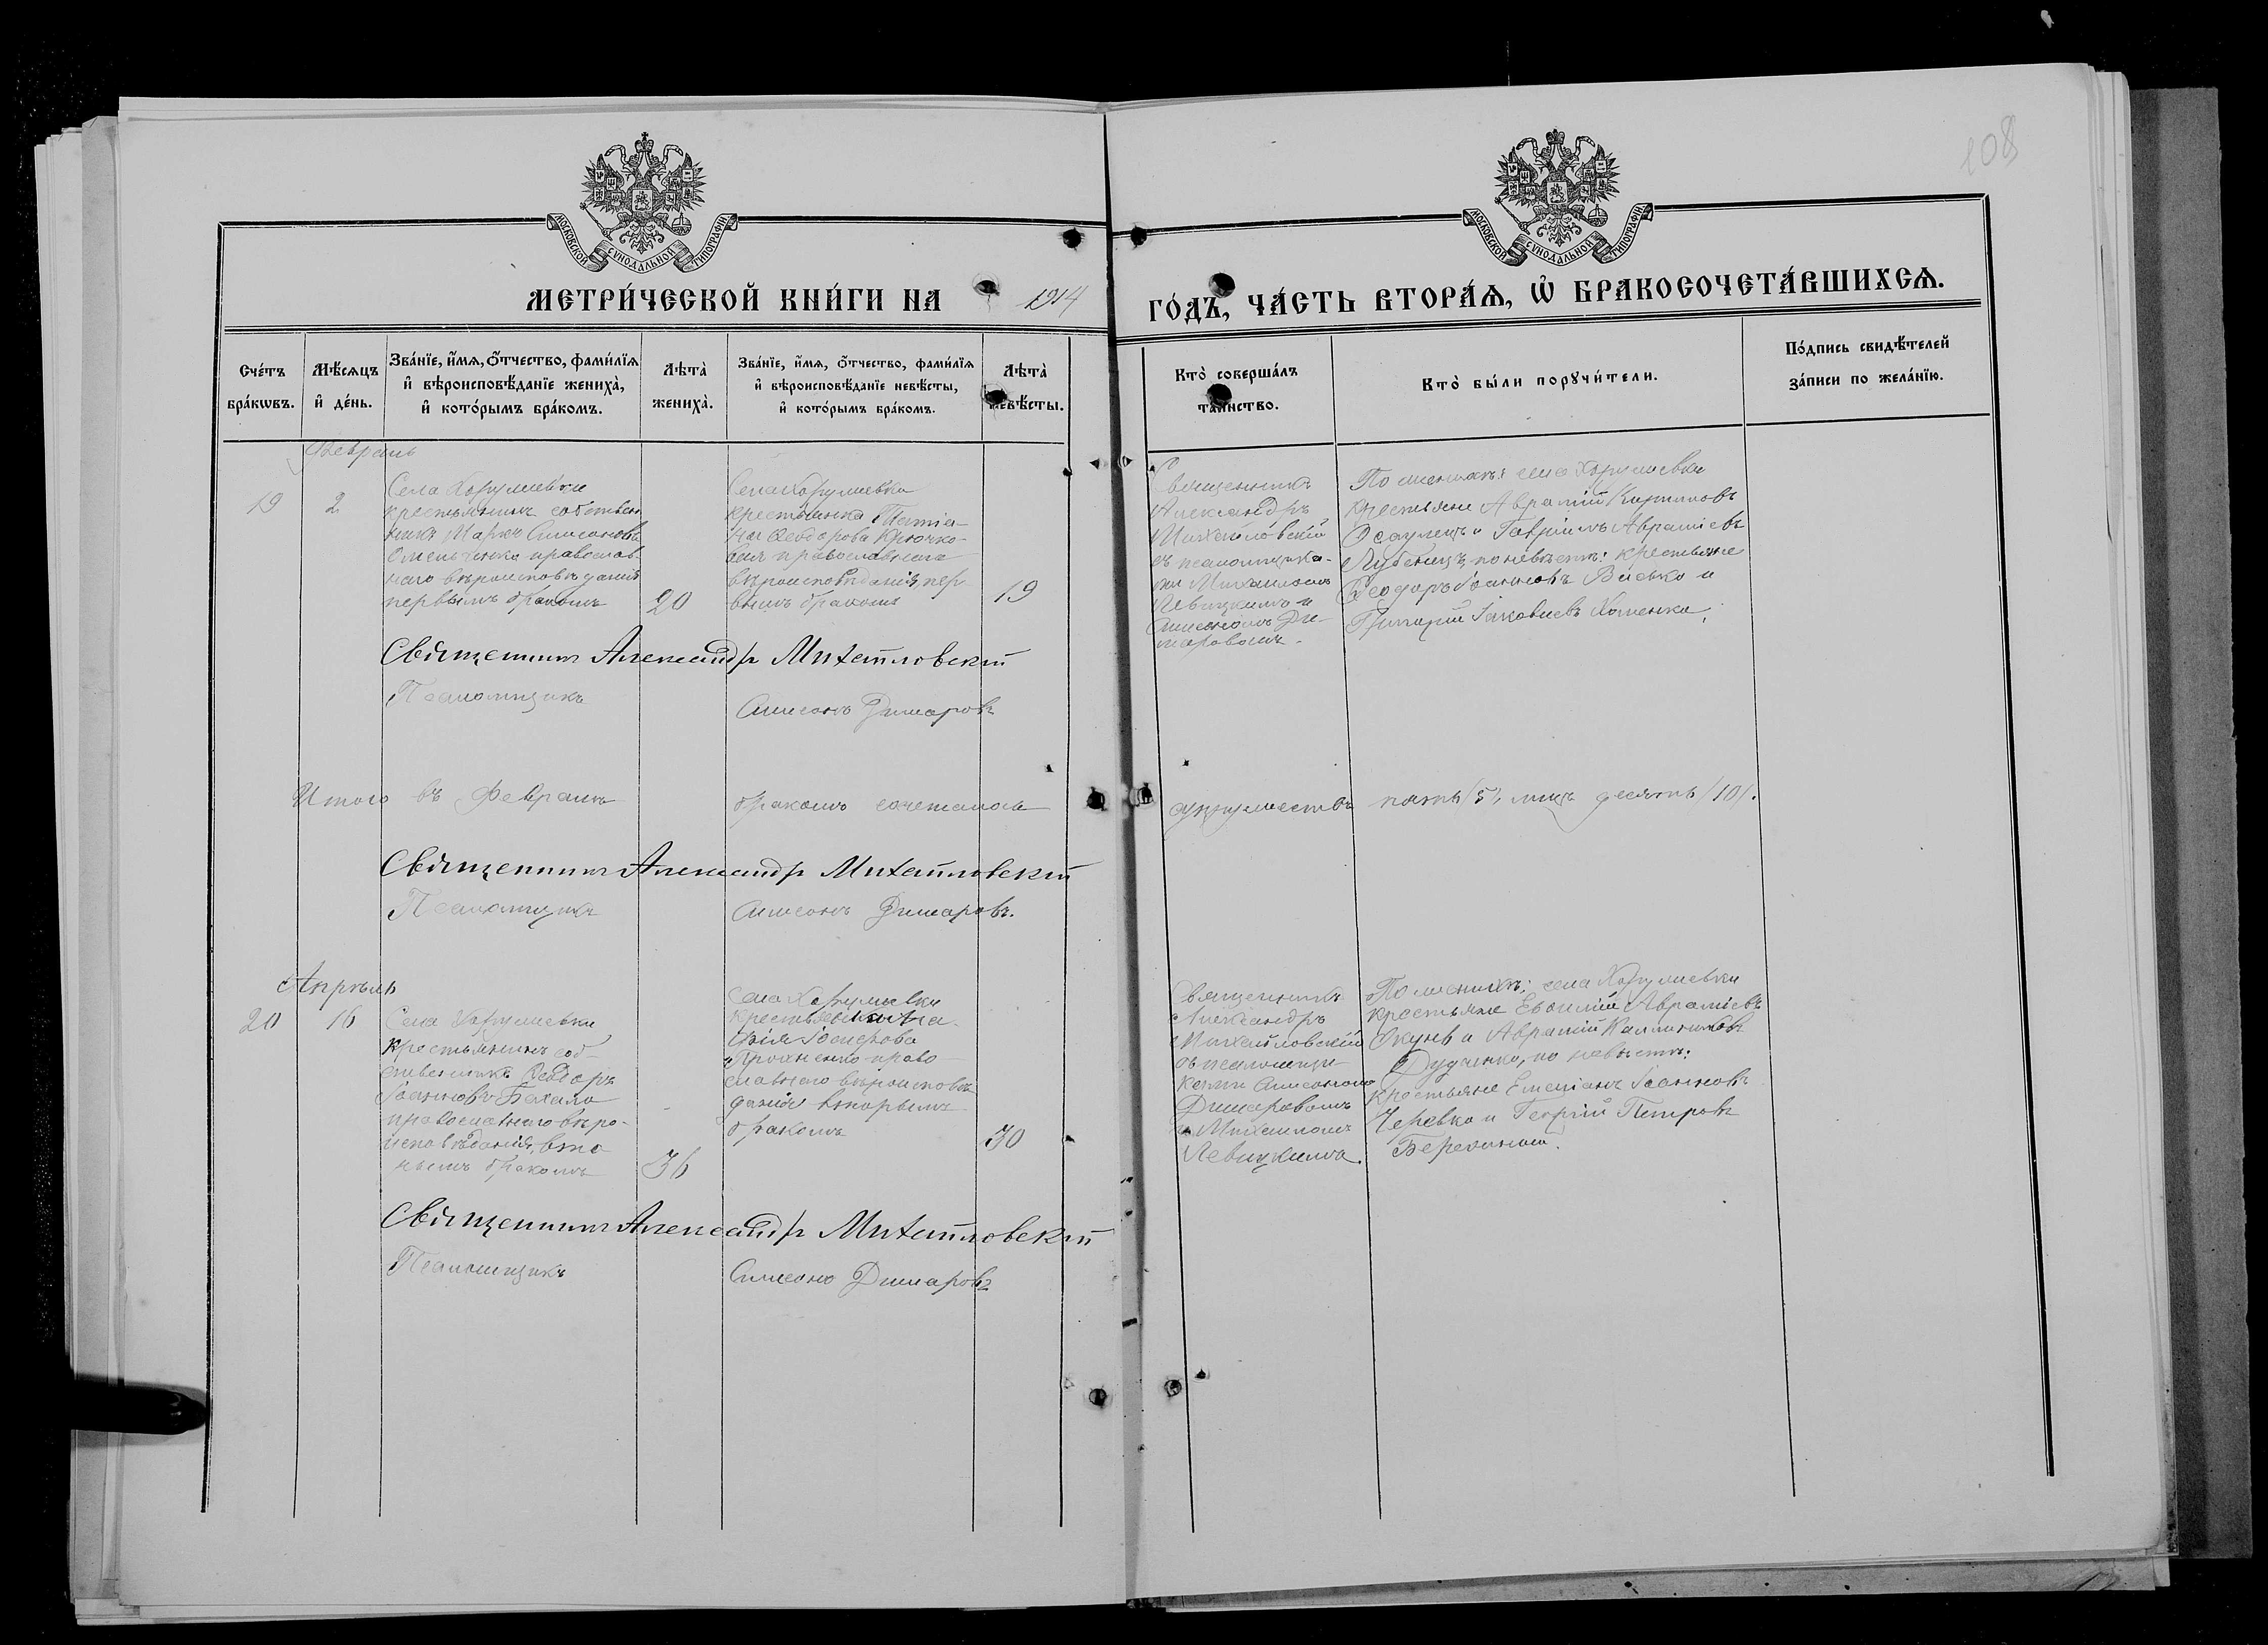 108
МОСКОВСКОЙ СѴНОДАЛЬНОЙ ТИПОГРАФІИ
МОСКОВСКОЙ СѴНОДАЛЬНОЙ ТИПОГРАФІИ
МЕТРИ́ЧЕСКОЙ КНИ́ГИ НА 1914
ГО́ДЪ, ЧА́СТЬ ВТОРА́Ѧ, Ѡ҆ БРАКОСОЧЕТА́ВШИХСѦ.
Сче́тъ
бра́кѡвъ.
Мѣ́сѧцъ
и҆ де́нь.
Зва́нїе, и҆́мѧ, ѻ҆́тчество, фами́лїѧ
и҆ вѣроисповѣ́данїе жениха̀,
и҆ кото́рымъ бра́комъ.
Лѣта̀
жениха̀.
Зва́нїе, и҆́мѧ, ѻ҆́тчество, фами́лїѧ
и҆ вѣроисповѣ́данїе невѣ́сты,
и҆ кото́рымъ бра́комъ.
Лѣта̀
невѣ́сты.
Кто̀ соверша́лъ
таинство.
Кто̀ бы́ли порꙋчи́тели.
По́дпись свидѣ́телей
за́писи по жела́нїю.
Февраль
19
2
Села Хорушевки
крестьянинъ собствен
никъ Маркъ Симеоновъ
Омельченко православ
наго вѣроисповѣданія
первымъ бракомъ
20
Села Хорушевки
крестьянка Татіа-
на Ѳеодорова Крючко-
ва православнаго
вѣроисповѣданія, пер-
вымъ бракомъ
19
Священникъ
Александръ
Михайловскій
съ псаломщика-
ми Михаиломъ
Левицкимъ и
Симеономъ Ди-
маровымъ.
По женихѣ: села Хорушевки
крестьяне Аврамій Кирилловъ
Осаулецъ и Гавріилъ Авраміевъ
Лубенецъ, по невѣстѣ: крестьяне
Ѳеодоръ Іоанновъ Васько и
Григорій Іаковлевъ Хоменко.
Священникъ Александръ Михайловскій
Псаломщикъ Симеонъ Димаровъ
Итого въ Февралѣ бракомъ сочеталось супружествъ пять /5/, лицъ десять /10/.
Священникъ Александръ Михайловскій
Псаломщикъ Симеонъ Димаровъ.
Апрѣль
20
16
Села Хорушевки
крестьянинъ соб-
ственникъ Ѳеодоръ
Іоанновъ Бакало
православнаго вѣро-
исповѣданія, вто
рымъ бракомъ
36
Села Хорушевки
право
славнаго вѣроисповѣ
данія вторымъ
бракомъ
30
Священникъ
Александръ
Михайловскій
съ псаломщи-
ками Симеономъ
Димаровымъ
и Михаиломъ
Левицкимъ.
По женихѣ: села Хорушевки
крестьяне Евѳимій Авраміевъ
Окунь и Аврамій Каллиниковъ
Дудченко, по невѣстѣ:
крестьяне Емеліанъ Іоанновъ
Черевко и Георгій Петровъ
Священникъ Александръ Михайловскій
Псаломщикъ Симеонъ Димаровъ